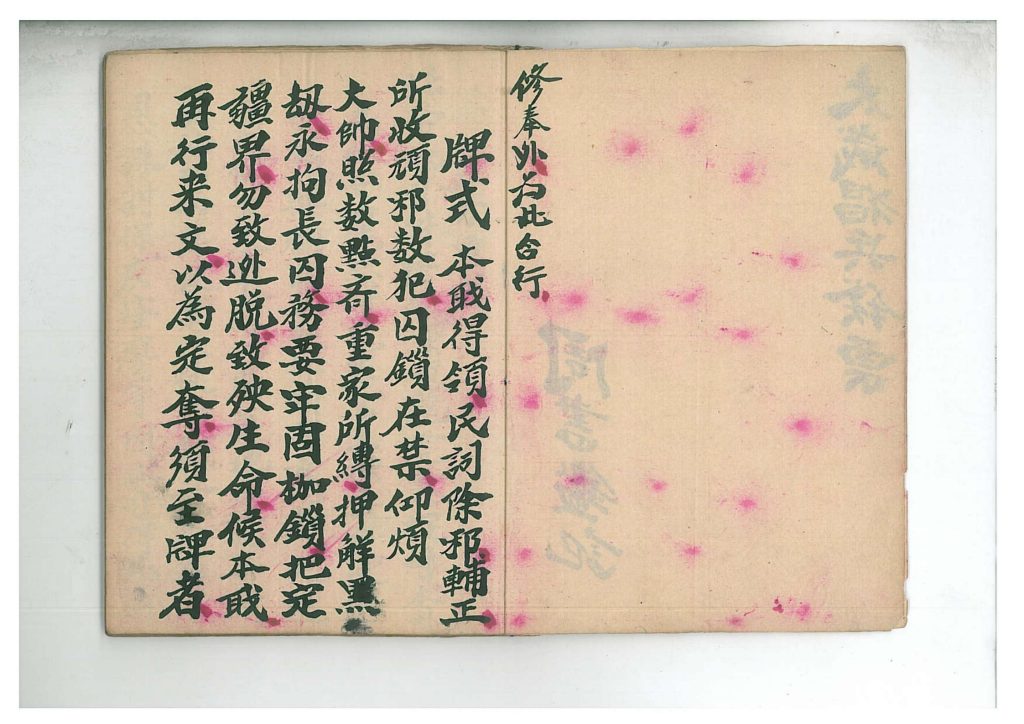 修奉外为此合行
牌式 本職得領民詞除邪輔正
所收頑邪数犯囚鎖在禁仰煩
大帥照数點斉重家所縛押解黑
刼永拘長囚務要牢固枷鎖把定
疆界勿致逃脱致殃生命候本職
再行来文以為定奪須至牌者